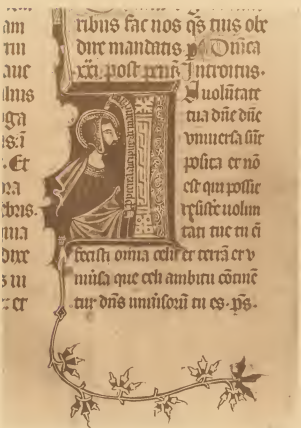 am
ga
. Et
ebris.
dixe
: et
ribus fac nos q̄s tuis obe
dire mandatis p Dn̄ica
xxi. post pent̄ Introitus.
N uolūtate
tua dn̄e dn̄e
vniuersa sūt
posita et nō
est qui possit
resist̄e uolun
tati tue tu ē
fecisti om̄ia celū et terrā et v
niūsa que celi ambitu cōtinē
tur dn̄s uniūsorū tu es. p̄s.